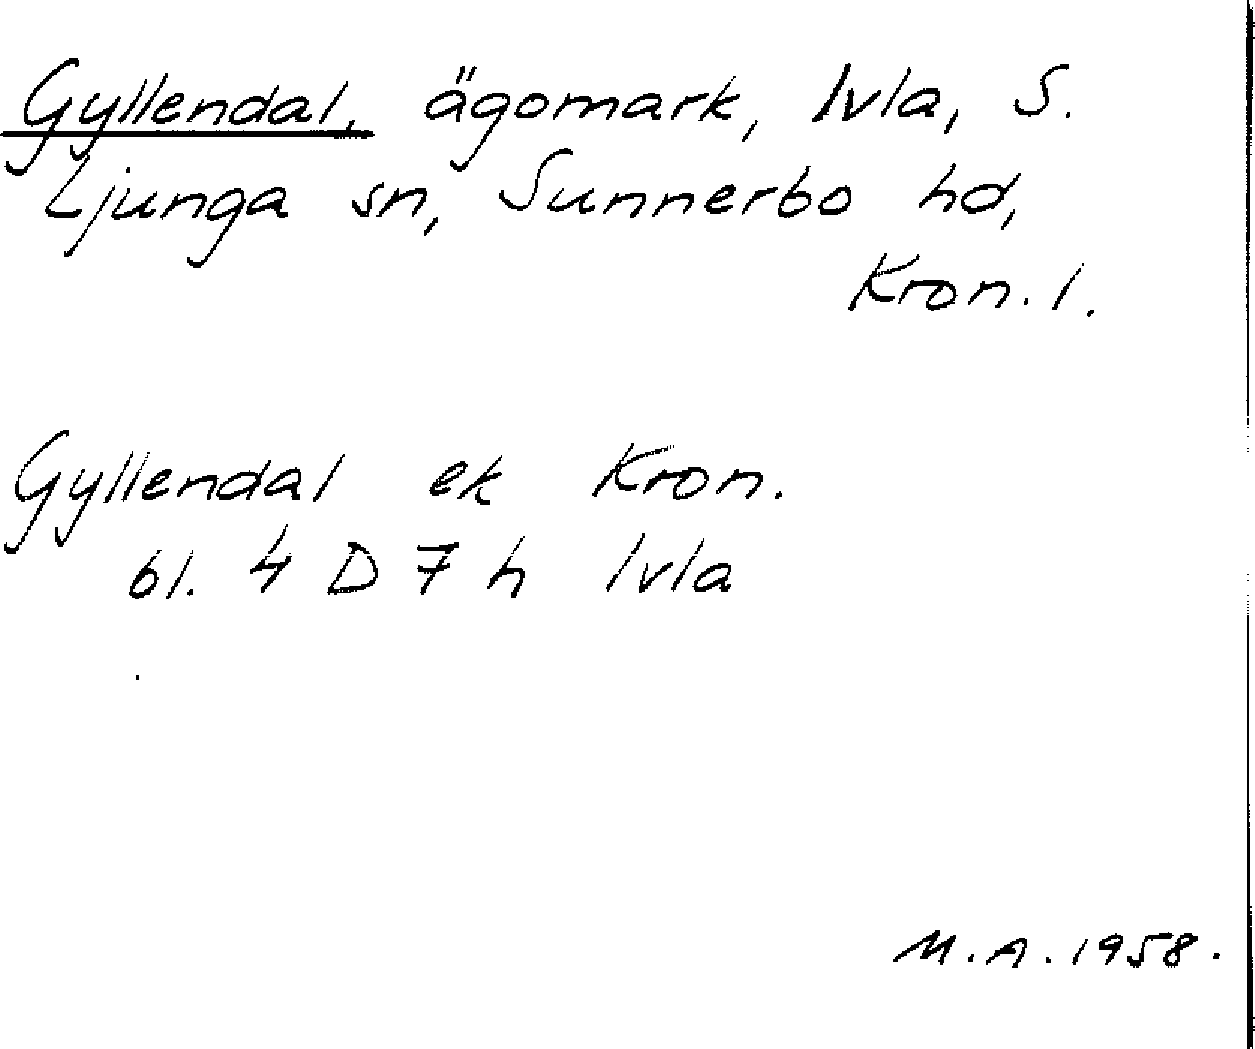 Gyllendal, ägomark, Ivla, S.
Ljunga sn, Sunnerbo hd,
Kron. l.
Gyllendal ek Kron.
bl. 4 D 7 h Ivla
M.A. 1958.